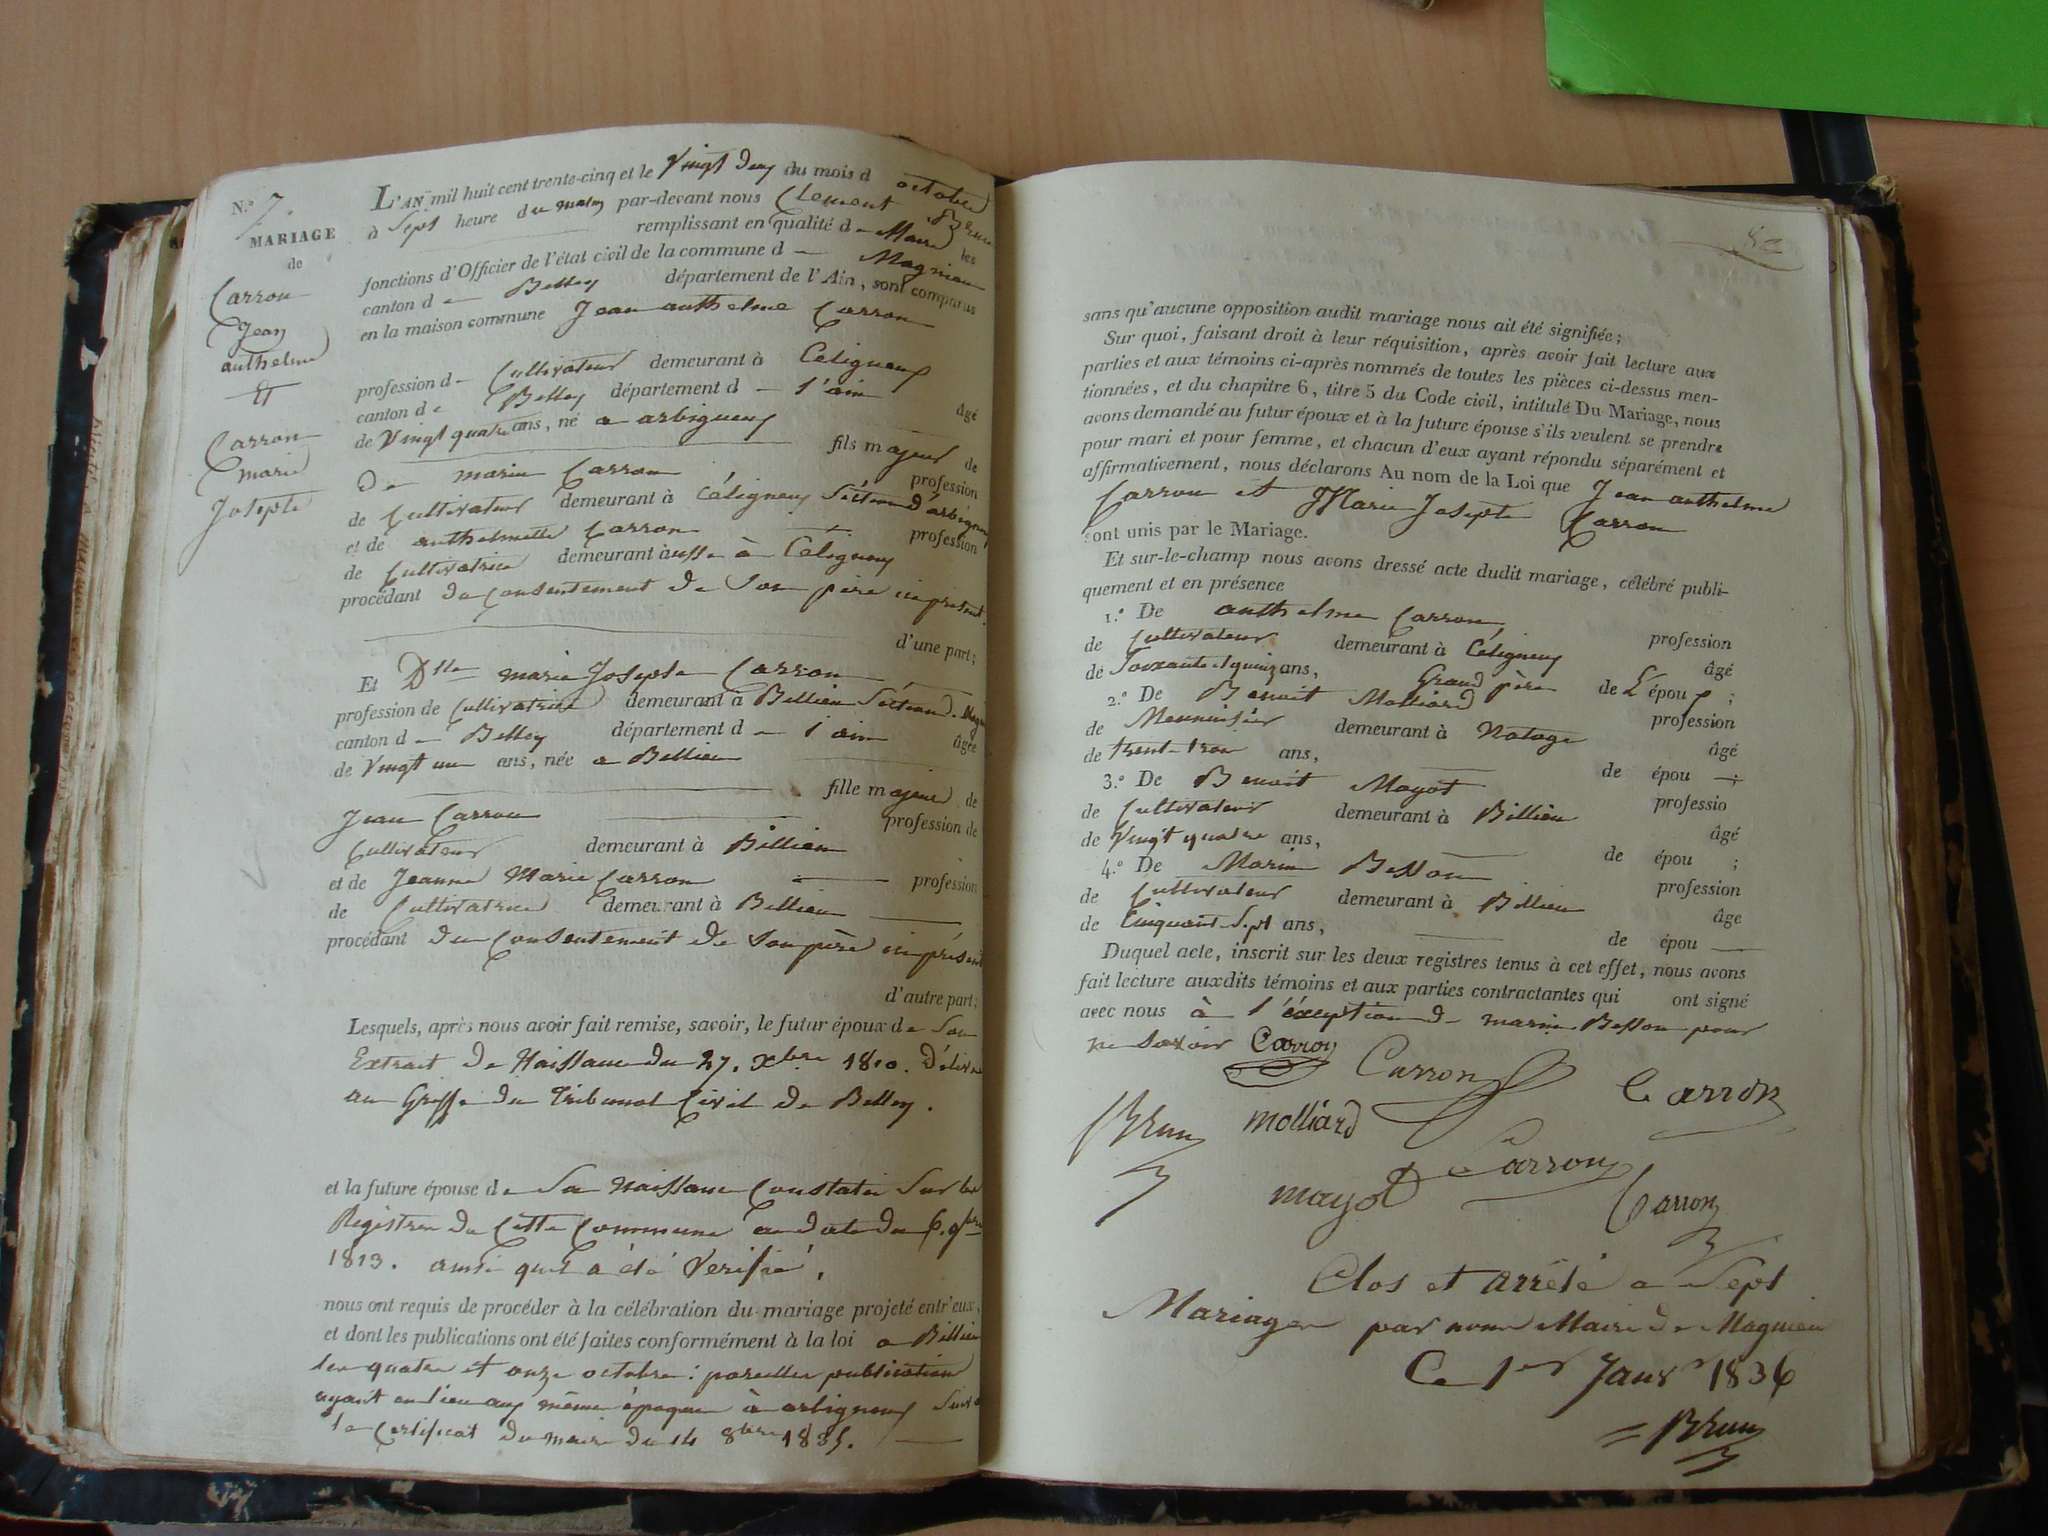 N.° 7.
MARIAGE
de
Carron
Jean
anthelme
et
Carron
marie
Josephte
L'AN mil huit cent trente-cinq et le Vingt deux du mois d octobre
à Sept heure du matin par-devant nous Clement Brun
remplissant en qualité de Maire les
fonctions d'Officier de l'état civil de la commune de Magnieu
canton de Belley département de l'Ain, sont comparus
en la maison commune Jean anthelme Carron
profession de Cultivateur demeurant à Céligneux
canton de Belley département de l'ain âgé
de Vingt quatre ans, né a arbigneux
fils majeur de
De marin Carron profession
de Cultivateur demeurant à Céligneux Séction d'arbigneux
et de anthelmette Carron profession
de Cultivatrice demeurant aussi à Céligneux
procédant du Consentement de Son père ici présent.
d'une part;
Et Dlle marie Josephte Carron
profession de Cultivatrice demeurant à Billieu Séction d.
canton de Belley département de l'ain âgée
de Vingt un ans, née a Billieu
fille majeure de
Jean Carron profession de
Cultivateur demeurant à Billieu
et de Jeanne Marie Carron profession
de Cultivatrice demeurant à Billieu
procédant du Consentement de Son père ici présent
d'autre part;
Lesquels, après nous avoir fait remise, savoir, le futur époux de Son
Extrait de Naissance du 27. Xbre 1810. Délivré
au Griffe du Tribunal Civil de Belley.
et la future épouse de Sa Naissance Constatée Sur les
Registres de Cette Commune a date du 6. 9bre
1813. ainsi quil a été Vérifié,
nous ont requis de procéder à la célébration du mariage projeté entr'eux,
et dont les publications ont été faites conformément à la loi a Billieu
les quatre et onze octobre: pareilles publication
ayant eu lieu aux même époques à arbigneux
le Certificat du maire du 14 8bre 1835.
sans qu'aucune opposition audit mariage nous ait été signifiée;
Sur quoi, faisant droit à leur réquisition, après avoir fait lecture aux
parties et aux témoins ci-après nommés de toutes les pièces ci-dessus men-
tionnées, et du chapitre 6, titre 5 du Code civil, intitulé Du Mariage, nous
avons demandé au futur époux et à la future épouse s'ils veulent se prendre
pour mari et pour femme, et chacun d'eux ayant répondu séparément et
affirmativement, nous déclarons Au nom de la Loi que Jean anthelme
Carron et Marie Josephte Carron
sont unis par le Mariage.
Et sur-le-champ nous avons dressé acte dudit mariage, célébré publi-
quement et en présence
1.° De anthelme Carron profession
de Cultivateur demeurant à Céligneux âgé
de Soixante et quinze ans, Grand père de L'époux;
2.° De Benoit Molliard profession
de Menuisier demeurant à Natage âgé
de trente trois ans, de épou ;
3.° De Benoit Mayot professio
de Cultivateur demeurant à Billieu âgé
de Vingt quatre ans, de épou ;
4.° De Marin Besson profession
de Cultivateur demeurant à Billieu âge
de Cinquante Sept ans, de épou
Duquel acte, inscrit sur les deux registres tenus à cet effet, nous avons
fait lecture auxdits témoins et aux parties contractantes qui ont signé
avec nous à l'éxception de marin Besson pour
ne Savoir Carron
Carron
Carron
Brun
molliard
Carron
mayot
Carron
Clos et arrêté a Sept
Mariages par nous Maire de Magnieu
Ce 1er Janvr 1836
Brun